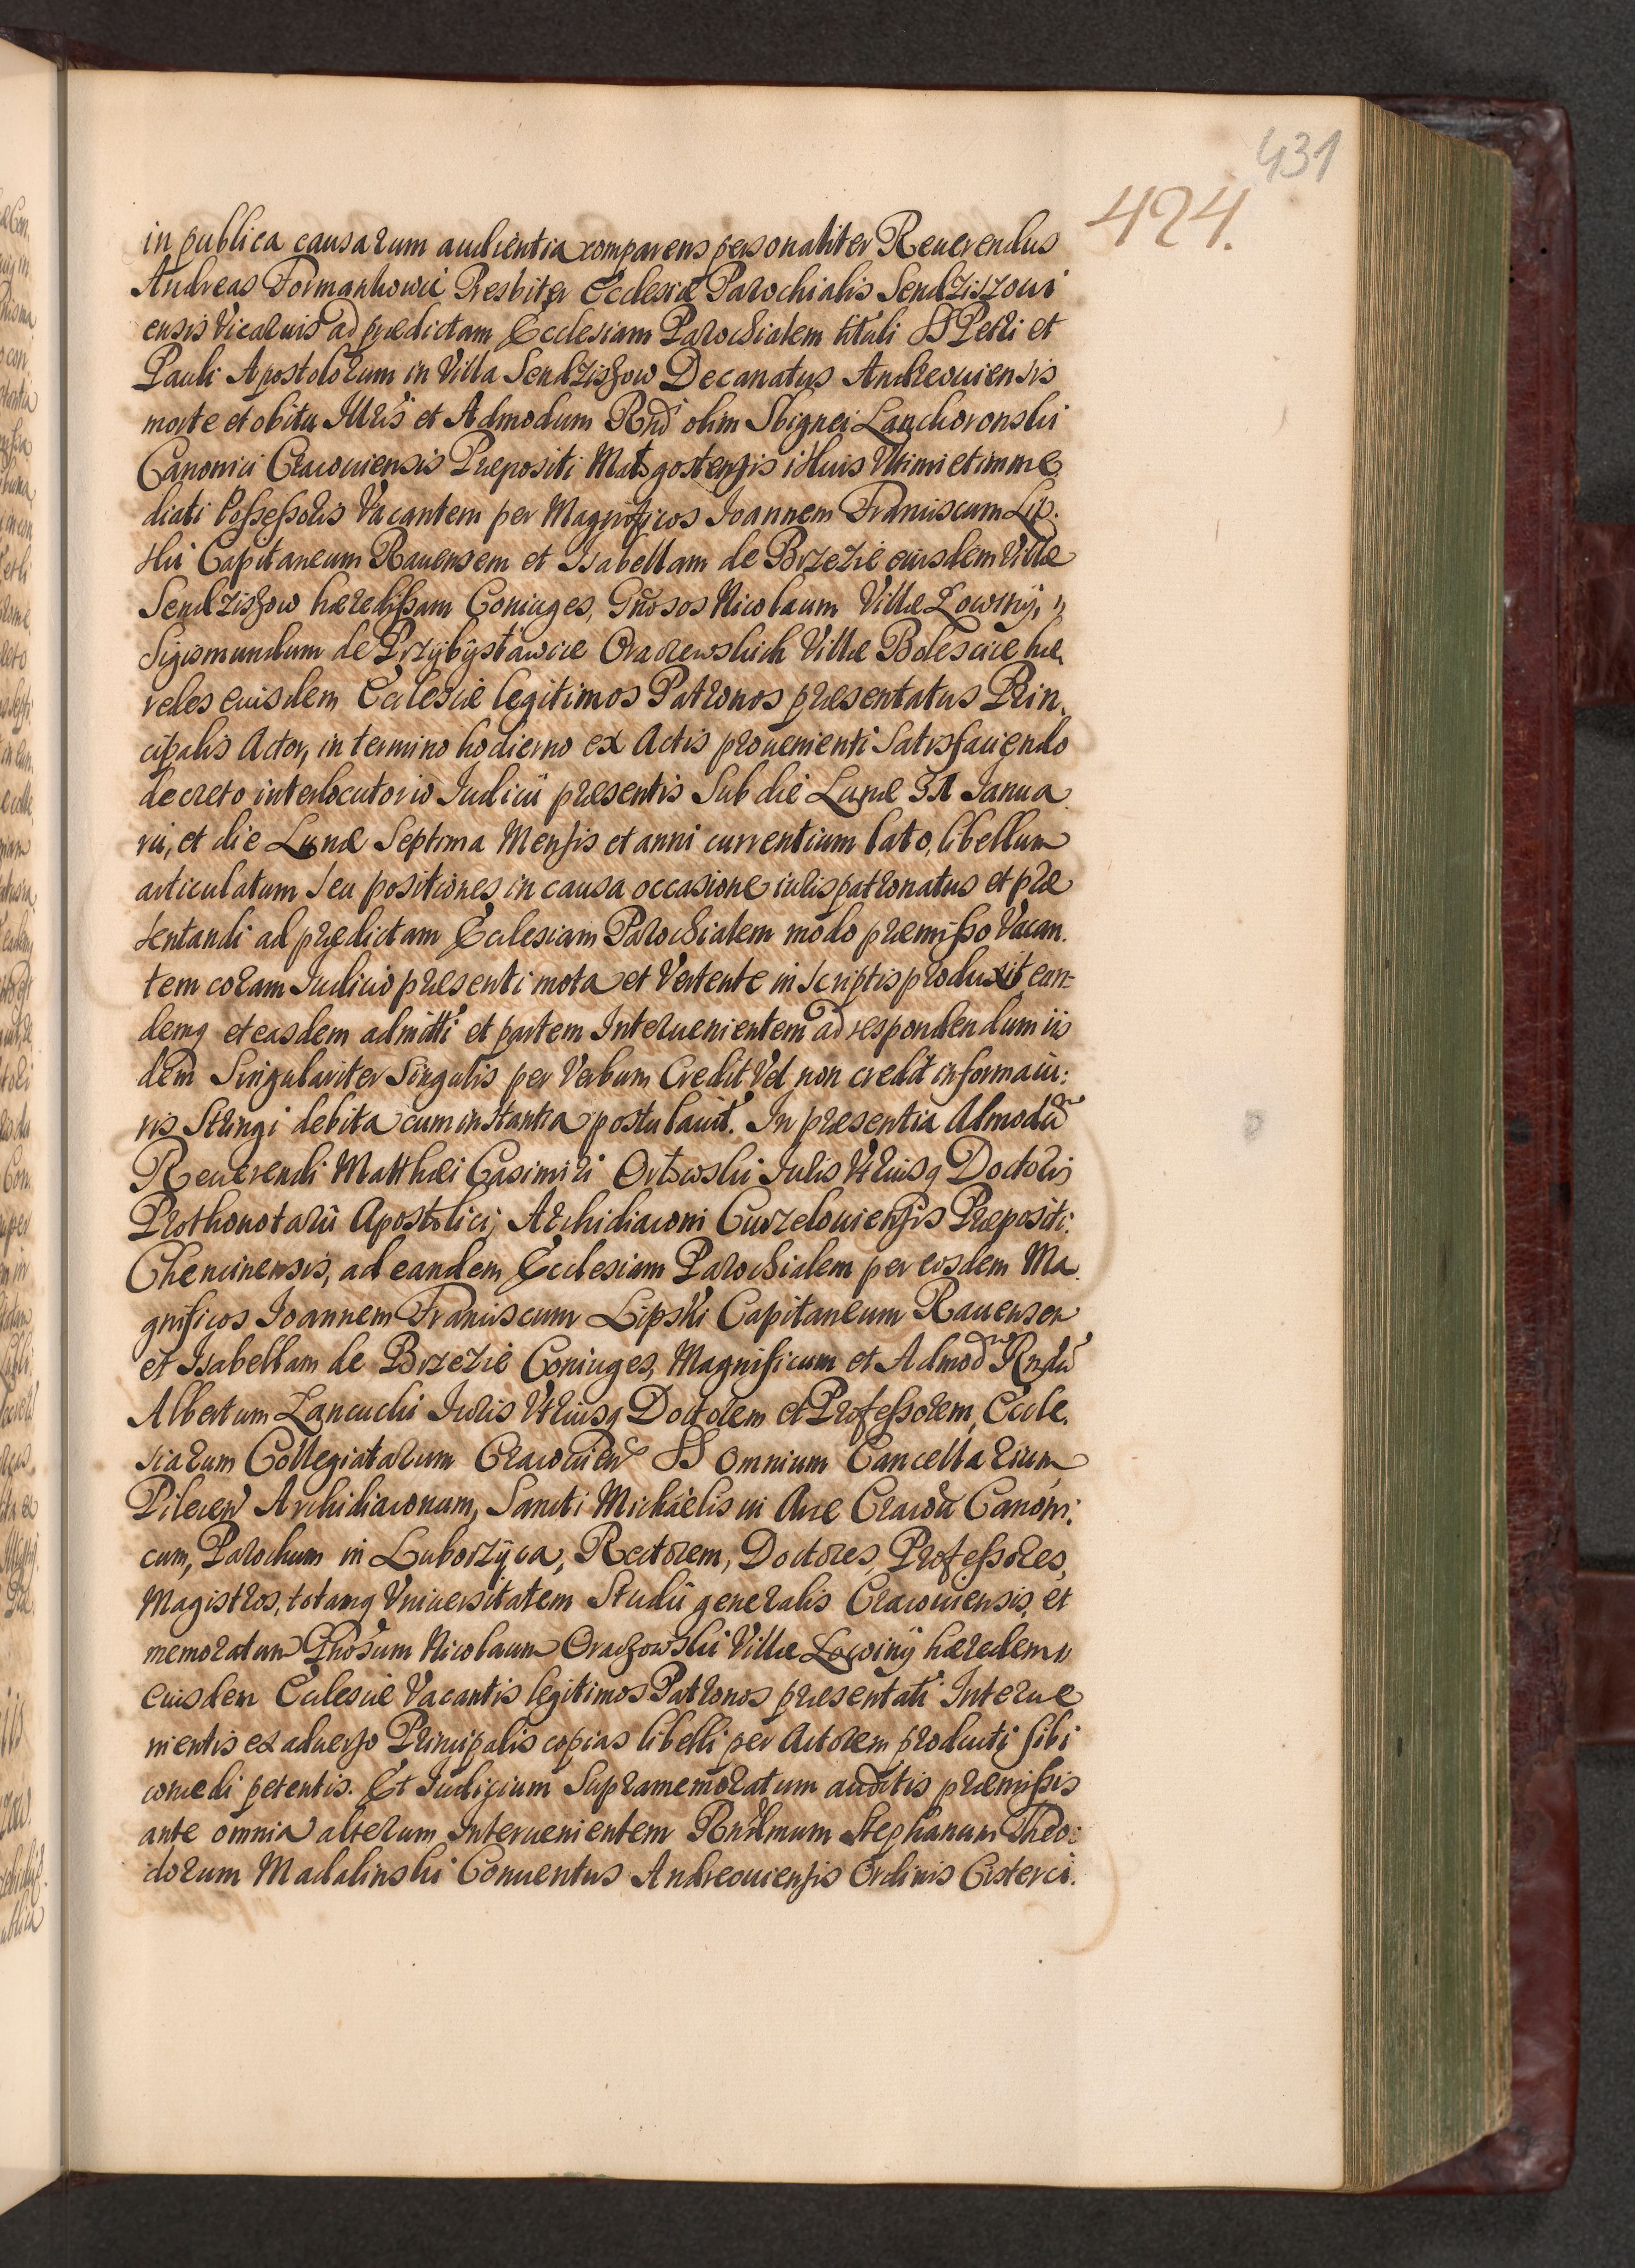 431
424.
in publica causarum audientia comparens personaliter Reuerendus
Andreas Formankowic Presbiter Ecclesiæ Parochialis Sendziszoui
ensis Vicarius ad prædictam Ecclesiam Parochialem tituli SS Petri et
Pauli Apostolorum in Villa Sendziszow Decanatus Andreouiensis
morte et obitu Illris et Admodum Rnd olim Sbignei Lanckoronski
Canonici Cracouiensis Præpositi illius Vltimi et imme
diati Possessoris Vacantem per Magnificos Joannem Franciscum Lip.
ski Capitaneum Rauensem et Isabellam de Brzezie eiusdem Villæ
Sendziszow hæredissam Coniuges, Gnosos Nicolaum Villæ Lowiny,
Sigismundum de Przybysławice Oraczewskich Villæ Bolescice hæ
redes eiusdem Eclesiæ legitimos Patronos præsentatus Prin,
cipalis Actor, in termino hodierno ex Actis prouenienti Satisfaciendo
decreto interlocutorio Iudicii præsentis Sub die Lunæ 31 Ianua
rii, et die Lunæ Septima Mensis et anni currentium lato, libellum
articulatum seu positiones in causa occasione iuris patronatus et præ
sentandi ad prædictam Eclesiam Parochialem modo præmisso Vacan.
tem coram Iudicio præsenti mota et Vertente in scriptis produxit ean=
demq et easdem admitti et partem Interuenientem ad respondendum iis
dem Singulariter Singulis per Verbum Credit Vel non credit in forma iu:
ris Stringi debita cum instantia postulauit. In præsentia Admodū
Reuerendi Matthæi Casimiri Iuris Vtriusq Doctoris
Prothonotarii Apostolici, Archidiaconi Curzelouiensis Præpositi
Chencinensis, ad eandem Ecclesiam Parochialem per eosdem Ma
gnificos Joannem Franciscum Lipski Capitaneum Rauensem
et Isabellam de Brzezie Coniuges, Magnificum et Admod Rndū
Albertum Lancucki Iuris Vtriusq Doctorem et Professorem, Eccle.
siarum Collegiatarum Cracouien SS Omnium Cancellarium
Pilecen Archidiaconum, Sancti Michaëlis in Arce Cracou Canoni:
cum, Parochum in Luborzyca, Rectorem, Doctores, Professores,
Magistros, totamq Vniuersitatem Studii generalis Cracouiensis, et
memoratum Gnosum Nicolaum Oraczowski Villæ Lowiny hæredem
eiusdem Eclesiæ Vacantis legitimos Patronos præsentati Interue
nientis ex aduerso Principalis copias libelli per Actorem producti sibi
concedi petentis. Et Iudicium Supramemoratum auditis præmissis
ante omnia alterum Interuenientem Rndmum Stephanum Theo:
dorum Madalinski Conuentus Andreouiensis Ordinis Cisterci.